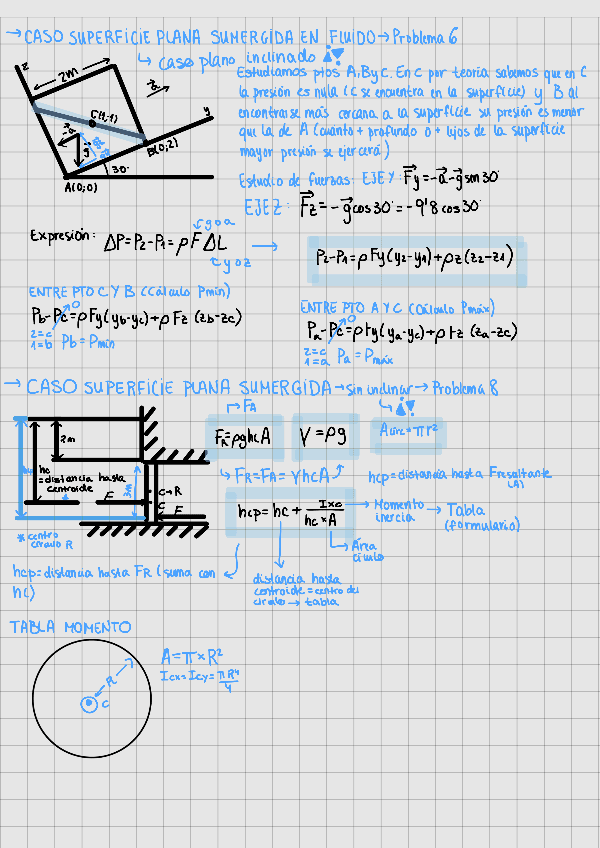 → CASO SUPERFICIE PLANA SUMERGIDA EN FLUIDO → Problema 6
↳ caso plano inclinado
Estudiamos ptos A, B y C. En C por teoría sabemos que en C
la presión es nula (C se encuentra en la superficie) y B al
encontrarse más cercana a la superficie su presión es menor
que la de A (cuanto + profundo o + lejos de la superficie
mayor presión se ejercerá)
z
2m
a
y
C(1,-1)
-a
g
B(0;2)
30°
A(0;0)
Estudio de fuerzas: EJE Y: Fy = -a - g sen 30°
EJE Z: Fz = -g cos 30° = -9'8 cos 30°
g o a
Expresión: ΔP = P2 - P1 = ρ F ΔL →
y o z
P2 - P1 = ρ Fy (y2 - y1) + ρ z (z2 - z1)
ENTRE PTO C Y B (Cálculo Pmín)
Pb - Pc = ρ Fy (yb - yc) + ρ Fz (zb - zc)
0
2 = c
1 = b Pb = Pmín
ENTRE PTO A Y C (Cálculo Pmáx)
Pa - Pc = ρ Fy (ya - yc) + ρ Fz (za - zc)
0
2 = c
1 = a Pa = Pmáx
→ CASO SUPERFICIE PLANA SUMERGIDA → sin inclinar → Problema 8
2m
hc
= distancia hasta
centroide
F
3m
C → R
C
F
* centro
círculo R
→ FA
FR = ρghcA
V = ρg
Acirc = πr²
↳ FR = FA = γhcA
hcp = distancia hasta Fresultante
(A)
hcp = hc + Ixc / hc × A
→ Momento
inercia → Tabla
(formulario)
→ Área
círculo
hcp = distancia hasta FR (suma con
hc)
distancia hasta
centroide = centro del
círculo → tabla
TABLA MOMENTO
R
C
A = π × R²
Icx = Icy = πR⁴ / 4